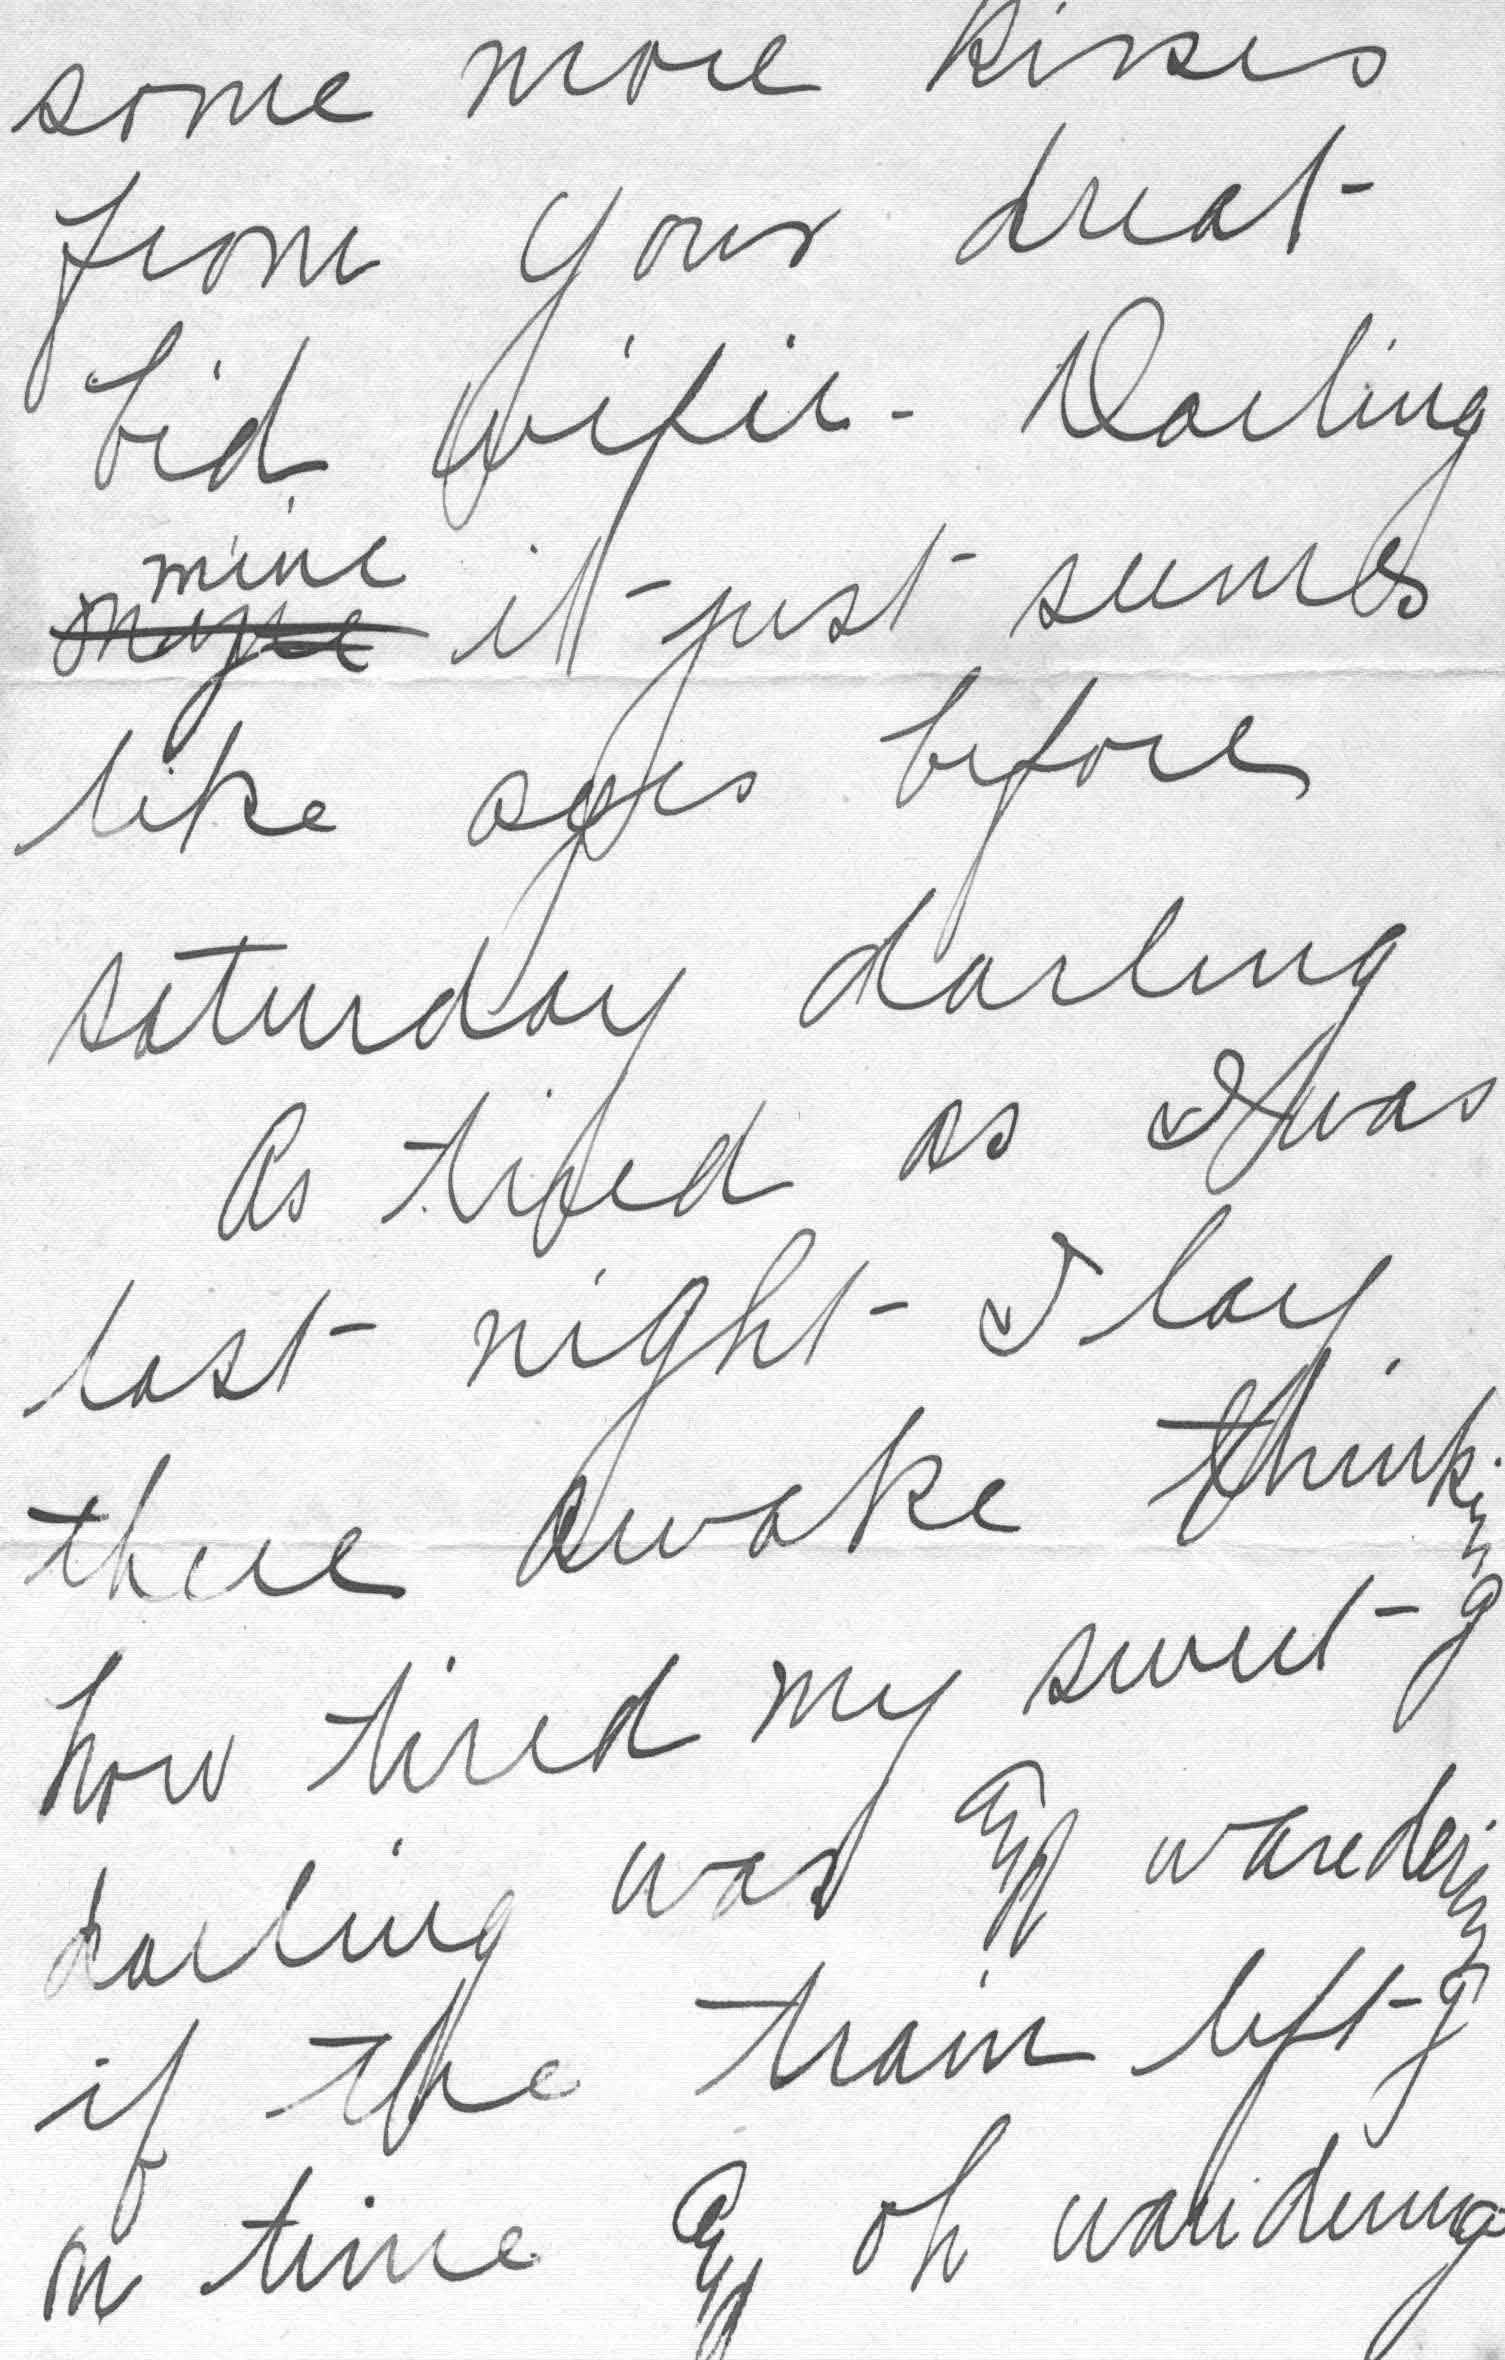 some more kisses
from your dreat
bid wifie - Darling
mine
it just seemes
like ages before
saturday darling
As tired as I was
last night I lay
there awake thinking
how tired my sweet
darling was and wandering
if the train left
on time and oh wandering